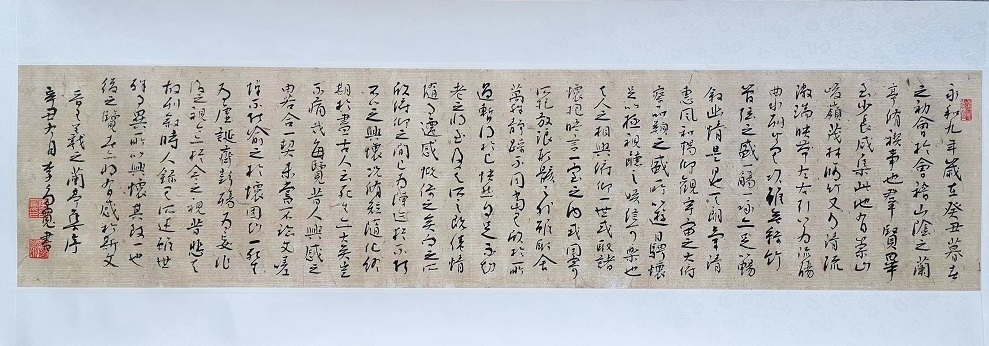 永和九年歲在癸丑暮春
之初會於會稽山陰之蘭
亭脩禊事也羣賢畢
至少長咸集此地有崇山
峻嶺茂林脩竹又有清流
激湍映帶左右引以為流觴
曲水列坐其次雖無絲竹
管弦之盛一觴一詠亦足以暢
敘幽情是日也天朗氣清
惠風和暢仰觀宇宙之大俯
察品類之盛所以遊目騁懷
足以極視聽之娛信可樂也
夫人之相與俯仰一世或取諸
懷抱晤言一室之內或因寄
所託放浪形骸之外雖取舍
萬殊靜躁不同當其欣於所
遇暫得於己快然自足不知
老之將至及其所之既倦情
隨事遷感慨係之矣向之所
欣俛仰之間已為陳迹猶不
以之興懷況脩短隨化終
期於盡古人云死生亦大矣豈
不痛哉每覽昔人興感之
由若合一契未嘗不臨文嗟
悼不能喻之於懷固知一死生
為虛誕齊彭殤為妄作
後之視今亦猶今之視昔悲夫
故列敘時人錄其所述雖世
殊事異所以興懷其致一也
後之覽者亦將有感於斯文
晉王羲之蘭亭集序
辛丑六月 書